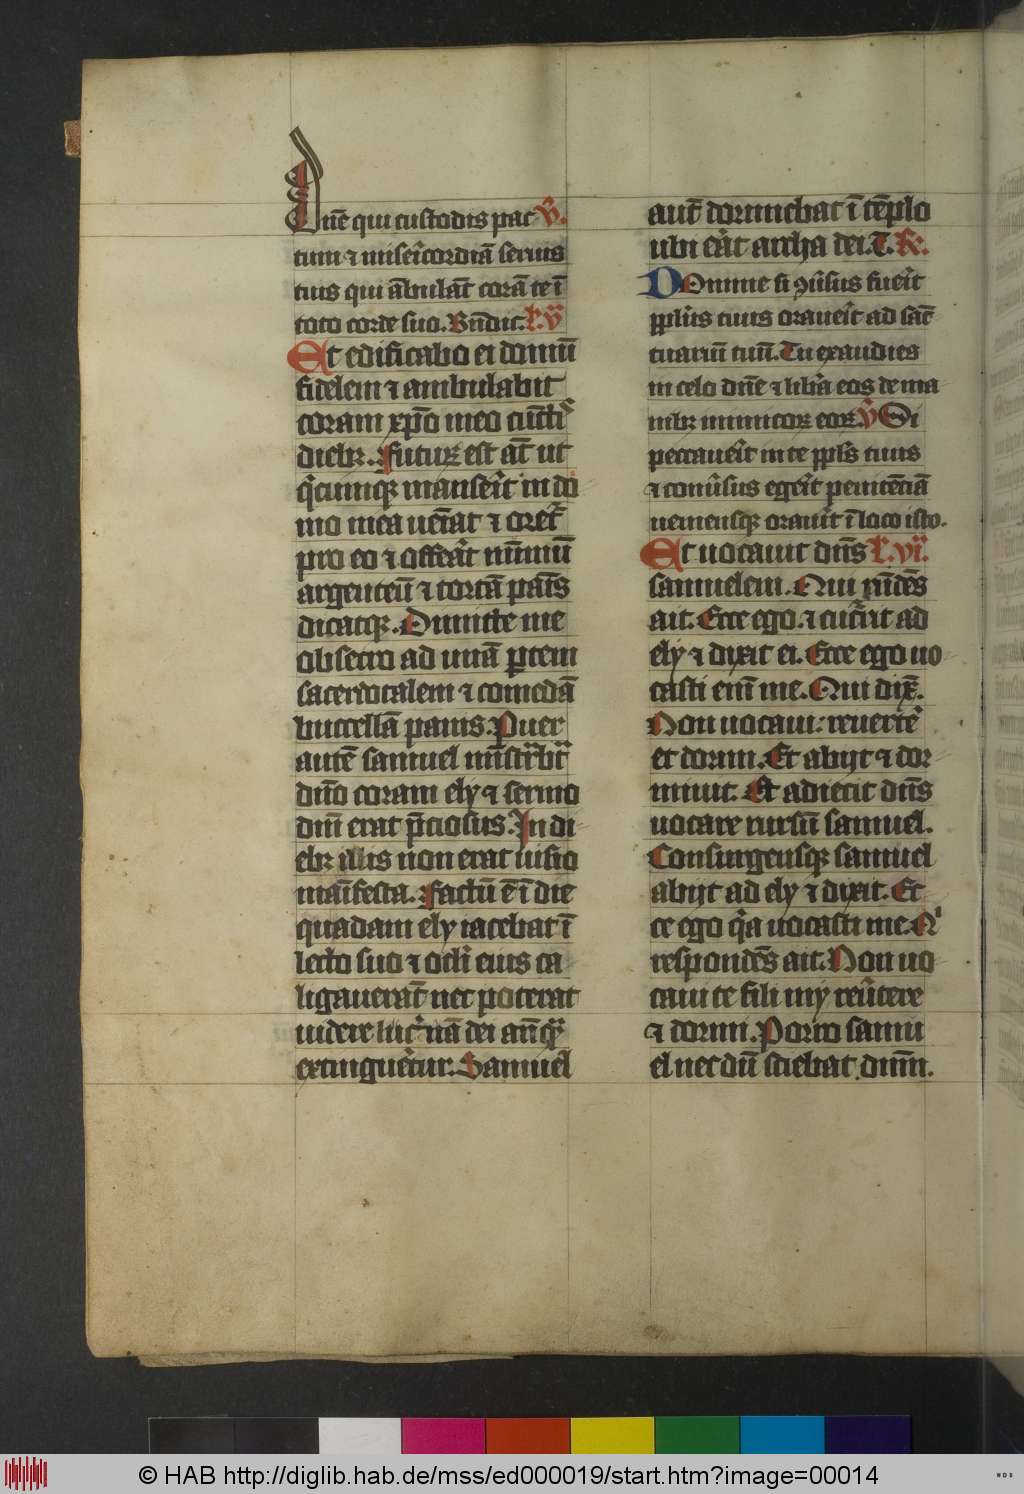 Dn̄e qui custodis pac V̄.
tum ⁊ miẜicordiā seruis
tuis qui ābulāt corā te ī
toto corde suo. Bn̄dic. L. V̄
Et edificabo ei domū
fidelem ⁊ ambulabit
coram xp̄o meo cūcti᷒
diebꝫ. Futuꝝ est āt ut
q̄cumqꝫ manserit in do
mo mea ueniat ⁊ oret᷑
pro eo ⁊ offerat nūmū
argenteū ⁊ tortā panis
dicatqꝫ. Dimitte me
obsecro ad unā ꝑtem
sacerdotalem ⁊ comedā
buccellā panis. Puer
autē samuel mīstrabat᷑
dn̄o coram ely ⁊ sermo
dn̄i erat p̄ciosus. In di
ebꝫ illis non erat uisio
manīfesta. Factū ē ī die
quadam ely iacebat ī
lecto suo ⁊ oculi eius ca
ligauerāt nec poterat
uidere luc᷑nā dei anteqꝫ
extinguēt᷑ur. Samuel
aut̄ dormiebat ī tēplo
ubi erat archa dei. T. R̄.
DOmine si ꝯuersus fuerit
ppl̄us tuus orauerit ad sāc
tuariū tuū. Tu exaudies
in celo dn̄e ⁊ libera eos de ma
nibꝫ inimicoꝝ eoꝝ. V̄ Si
peccauerit in te ppl̄s tuus
⁊ conuersus egerit penitēciā
ueniensqꝫ orauerit ī loco isto.
Et uocauit dn̄s L. VI.
samuelem. Qui rn̄dēs
ait. Ecce ego. ⁊ cucurrit ad
ely ⁊ dixit ei. Ecce ego uo
casti eni᷒ me. Qui dix̄.
Non uocaui: reuerte᷑
et dormi. Et abijt ⁊ dor
miuit. Et adiecit dn̄s
uocare rursū samuel.
Consurgensqꝫ samuel
abijt ad ely ⁊ dixit. Ec
ce ego qͥa uocasti me. Qͥ
respondēs ait. Non uo
caui te fili my reuertere
⁊ dormi. Porro samu
el nec dū sciebat dn̄m.
© HAB http://diglib.hab.de/mss/ed000019/start.htm?image=00014